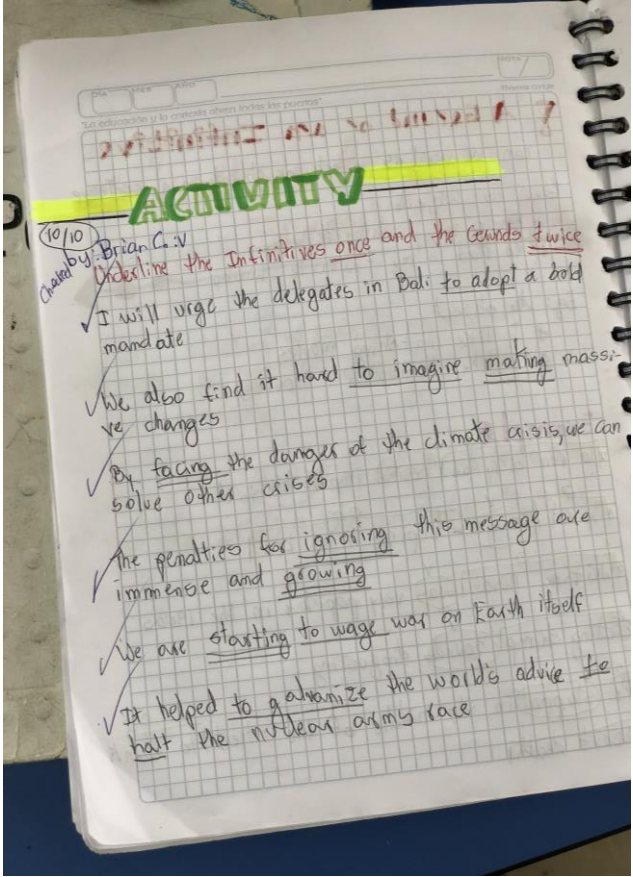 DIA MES AÑO NOTA
"La educación y la cortesía abren todas las puertas"
ACTIVITY
10/10
Checked by: Brian C. :V
Underline the Infinitives once and the Gerunds twice
I will urge the delegates in Bali to adopt a bold
mandate
We also find it hard to imagine making massi-
ve changes
By facing the danger of the climate crisis, we can
solve other crises
The penalties for ignoring this message are
immense and growing
We are starting to wage war on Earth itself
It helped to galvanize the world's advice to
halt the nuclear arms race